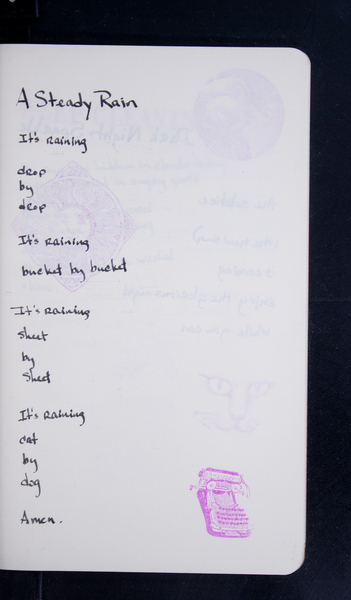 A Steady Rain
It's raining
drop
by
drop
It's raining
bucket by bucket
It's raining
sheet
by
sheet
It's raining
cat
by
dog
Amen.